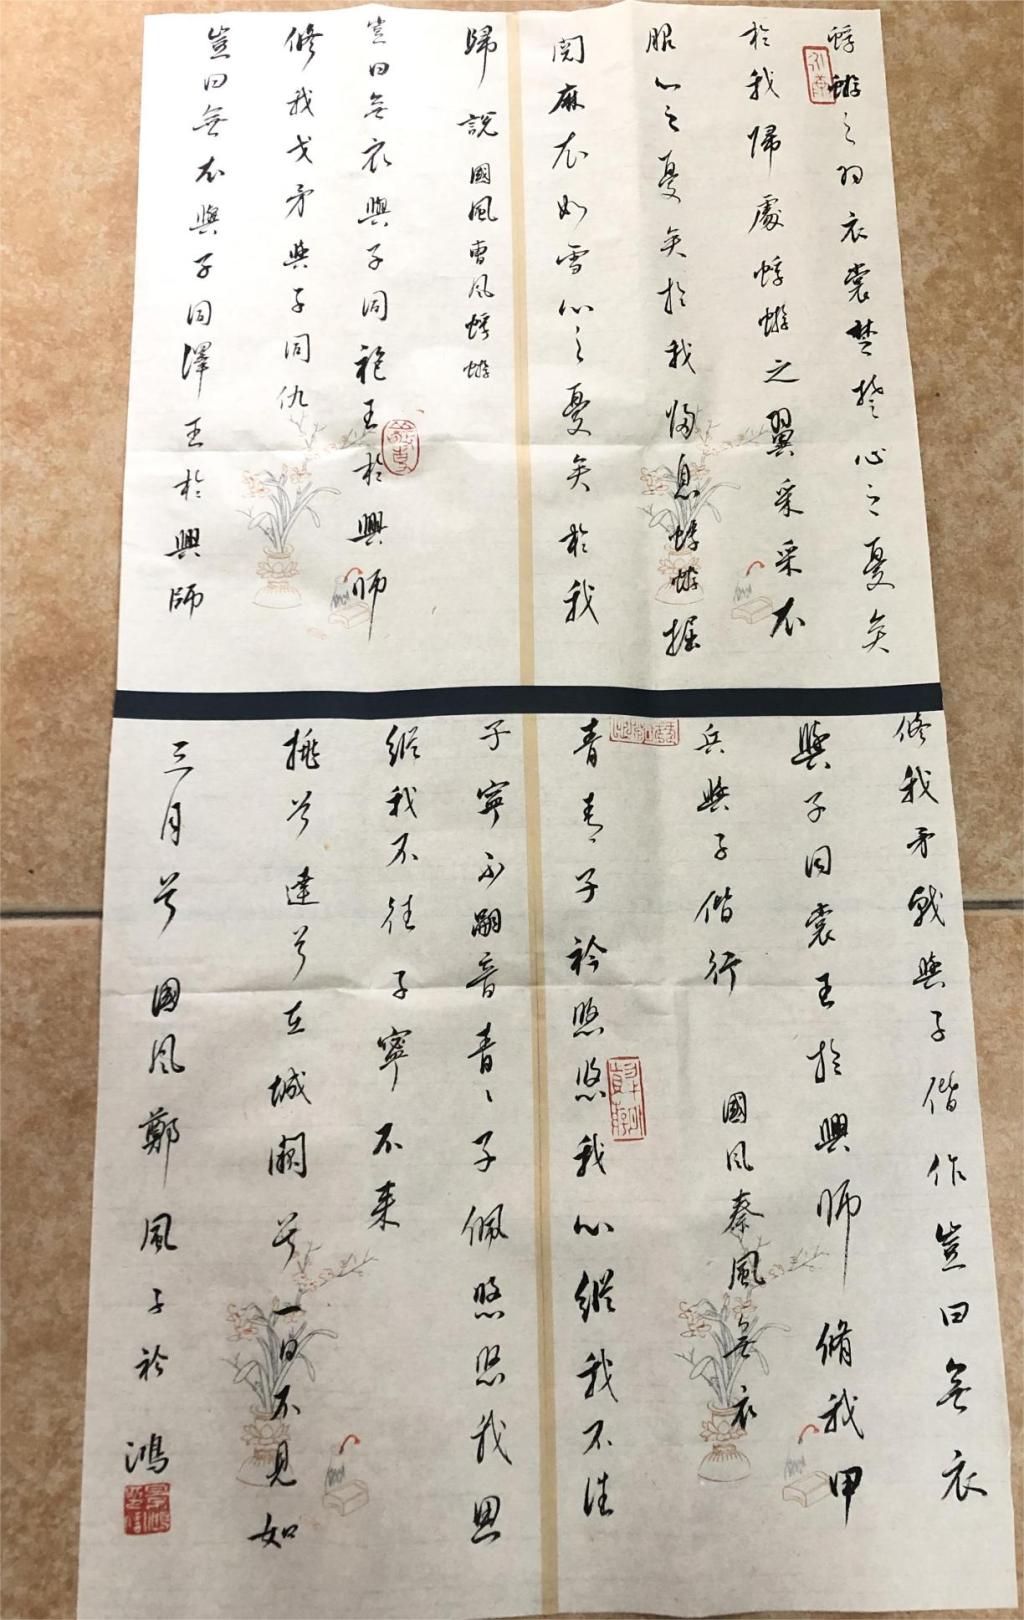 蜉蝣之羽衣裳楚楚心之憂矣
於我歸處蜉蝣之翼采采衣
服心之憂矣於我歸息蜉蝣掘
閱麻衣如雪心之憂矣於我
歸說 國風曹風蜉蝣
豈曰無衣與子同袍王於興師
修我戈矛與子同仇
豈曰無衣與子同澤王於興師
修我矛戟與子偕作豈曰無衣
與子同裳王於興師修我甲
兵與子偕行 國風秦風無衣
青青子衿悠悠我心縱我不往
子寧不嗣音青、子佩悠悠我思
縱我不往子寧不来
挑兮達兮在城闕兮一日不見如
三月兮 國風鄭風子衿 鴻